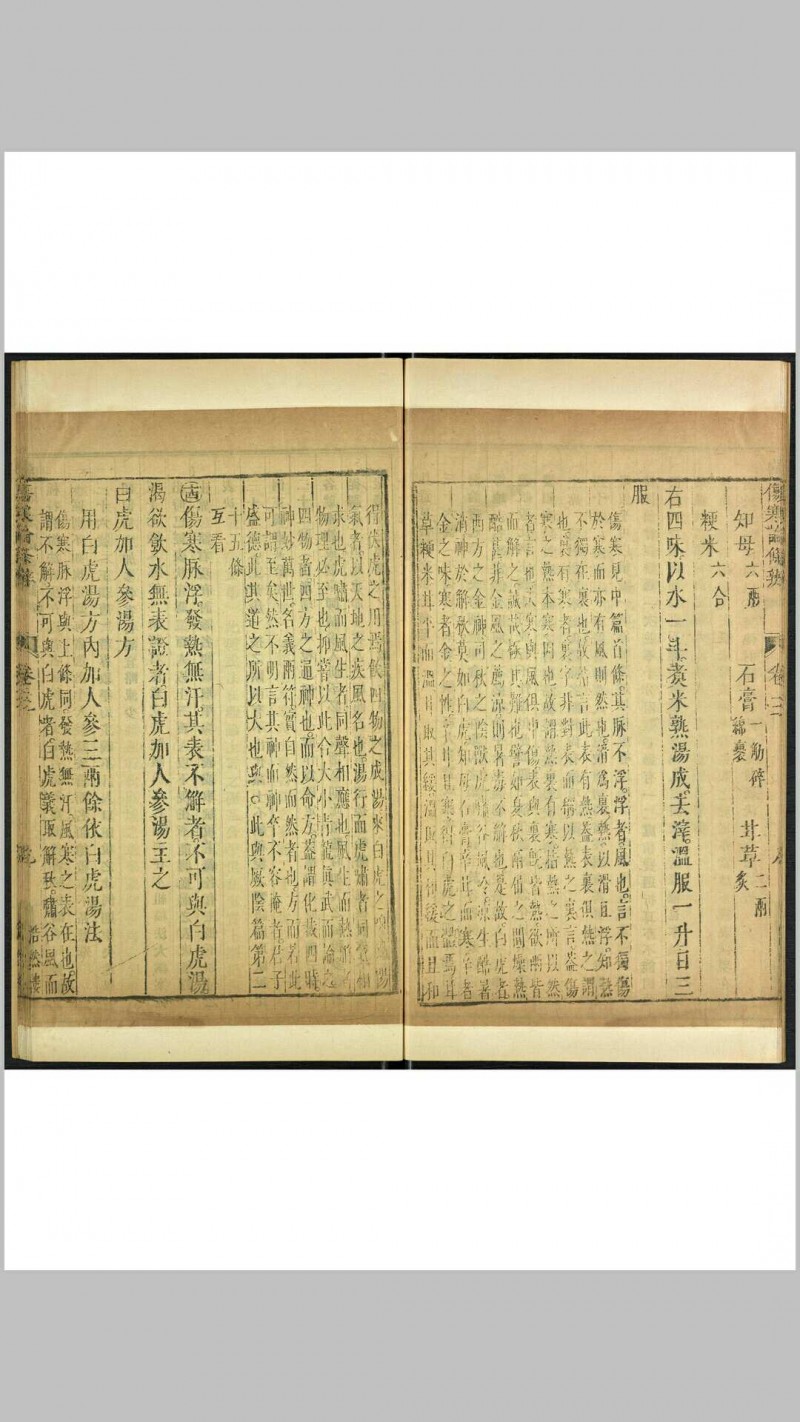 傷寒論條辨 卷三
知母六兩 石膏一觔碎綿裹 甘草二兩炙
粳米六合
右四味以水一斗煑米熟湯成去滓溫服一升日三
服
傷寒見中篇首條其脈不浮浮者風也言不獨傷
於寒而亦有風則然也滑為裏熱以滑且浮知熱
不獨在裏也故指言此表有熱葢表裏俱熱之謂
也裏有寒者裏字非對表而稱以熱之寒言葢傷
寒之熱本寒因也故謂熱裏有寒指熱之所以然
者言也夫寒與風俱中傷表與裏旣皆熱欲兩皆
而解之誠哉極其難也譬如夏秋酷
酷其非金風之薦涼則暑毒不解也是故白虎者
西方之金神司秋之陰獸虎嘯谷風冷涼生酷暑
消神於解秋莫如白虎知母石膏辛甘而寒辛者
金之味寒者金之性辛甘且寒得白虎之體焉甘
草粳米甘平而溫甘取其緩溫取其和緩而且和
得伏虎之用焉飲四物之成湯來白虎之
氣者以天地之疾風名也湯行而虎嘯者同氣相
求也虎嘯而風生者同聲相應也風生而熱解者
物理必至也抑嘗以此合大小青龍眞武而論之
四物者四方之通神也而以命方葢謂化裁四時
神妙萬世名義兩符實自然而然者也方而若此
可謂至矣然不明言其神而神卒不容掩者君子
盛德此其道之所以大也與此與厥陰篇第二
十五條
互看
傷寒脈浮發熱無汗其表不解者不可與白虎湯
渴欲飲水無表證者白虎加人參湯主之
白虎加人參湯方
用白虎湯方內加人參三兩餘依白虎湯法
傷寒脈浮與上條同發熱無汗風寒之表在也故
謂不解不可與白虎者白虎義取解秋嘯谷風而
浩然樓